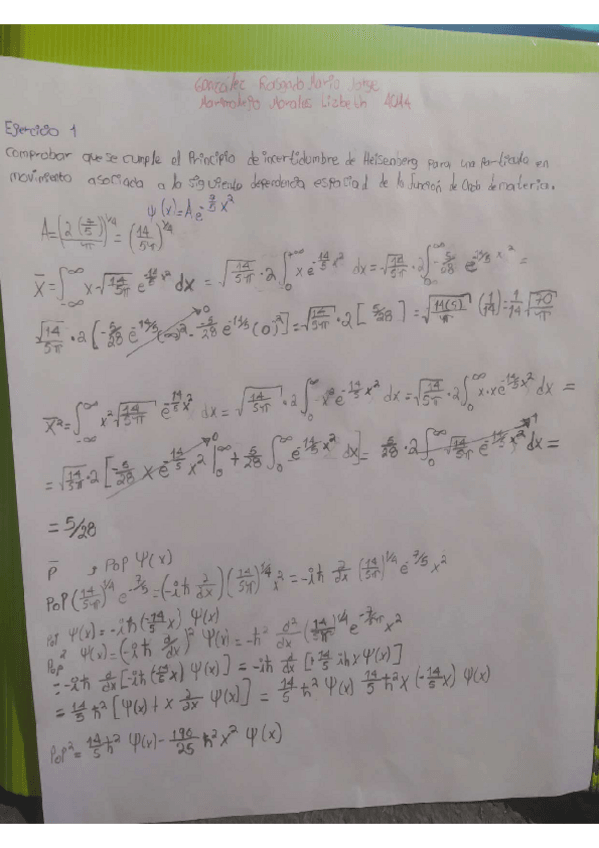 González Rosando Mario Jorge
Marmolejo Morales Lizbeth 4014
Ejercicio 1
Comprobar que se cumple el Principio de incertidumbre de Heisenberg para una partícula en
movimiento asociada a la siguiente dependencia espacial de la función de Onda de materia.
ψ(x)=A e^{-7/5 x²}
A=(2(7/5)/π)^{1/4} = (14/5π)^{1/4}
x̄=∫_{-∞}^{∞} x √(14/5π) e^{-14/5 x²} dx = √(14/5π) · 2∫_{0}^{+∞} x e^{-14/5 x²} dx = √(14/5π) · 2∫_{0}^{∞} -5/28 e^{-14/5 x²} =
√(14/5π) · 2[-5/28 e^{-14/5 (∞)²} - -5/28 e^{-14/5 (0)²}] = √(14/5π) · 2[5/28] = √(14(5)/π) (1/14) = 1/14 √(70/π)
x̄²=∫_{-∞}^{∞} x² √(14/5π) e^{-14/5 x²} dx = √(14/5π) · 2∫_{0}^{∞} x² e^{-14/5 x²} dx = √(14/5π) · 2∫_{0}^{∞} x·x e^{-14/5 x²} dx =
= √(14/5π) · 2[-5/28 x e^{-14/5 x²} |_{0}^{∞} + 5/28 ∫_{0}^{∞} e^{-14/5 x²} dx] = 5/28 · 2∫_{0}^{∞} √(14/5π) e^{-14/5 x²} dx =
= 5/28
p̄ , Pop ψ(x)
Pop (14/5π)^{1/4} e^{-7/5} = (-iħ ∂/dx)(14/5π)^{1/4} x² = -iħ ∂/dx (14/5π)^{1/4} e^{-7/5} x²
Pop ψ(x) = -iħ(-14/5 x) ψ(x)
Pop² ψ(x) = (-iħ d/dx)² ψ(x) = -ħ² d²/dx (14/5π)^{1/4} e^{-7/5} x²
= -iħ d/dx [-iħ(-14/5 x) ψ(x)] = -iħ d/dx [+14/5 iħxψ(x)]
= 14/5 ħ² [ψ(x) + x ∂/∂x ψ(x)] = 14/5 ħ² ψ(x) 14/5 ħ² x (-14/5 x) ψ(x)
Pop² = 14/5 ħ² ψ(x) - 196/25 ħ² x² ψ(x)